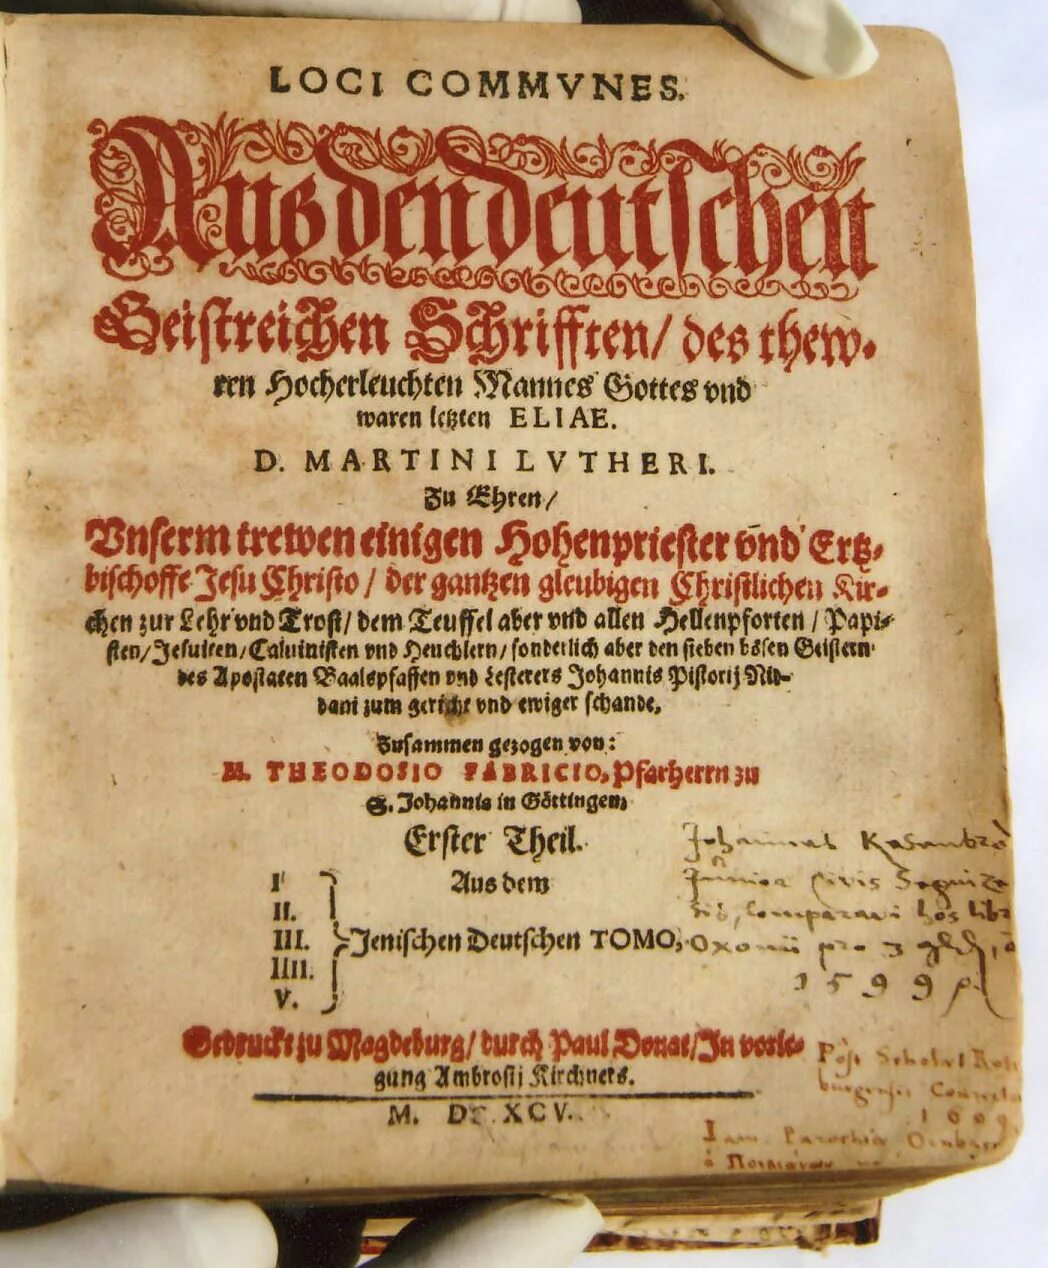 LOCI COMMVNES.
Aus den deutschen
Geistreichen Schrifften/ des thew-
ren Hocherleuchten Mannes Gottes vnd
waren letzten ELIAE.
D. MARTINI LVTHERI.
Zu Ehren/
Vnserm trewen einigen Hohenpriester vnd Ertz-
bischoffe Jesu Christo/ der gantzen gleubigen Christlichen Kir-
chen zur Lehr vnd Trost/ dem Teuffel aber vnd allen Hellenpforten/ Papi-
sten/ Jesuiten/ Caluinisten vnd Heuchlern/ sonderlich aber den sieben bösen Geistern
des Apostaten Baalspfaffen vnd Lesterers Johannis Pistorij Nid-
dani zum gericht vnd ewiger schande.
Zusammen gezogen von:
M. THEODOSIO FABRICIO, Pfarherrn zu
S. Johannis in Göttingen.
Erster Theil.
Aus dem
I
II.
III.
IIII.
V.
Jenischen Deutschen TOMO.
Johannes
Junior Civis
comparavi hos
Oxonii pro 3
1599
Gedruckt zu Magdeburg/ durch Paul Donat/ In vorle-
gung Ambrosij Kirchners.
M. D. XCV.
1609